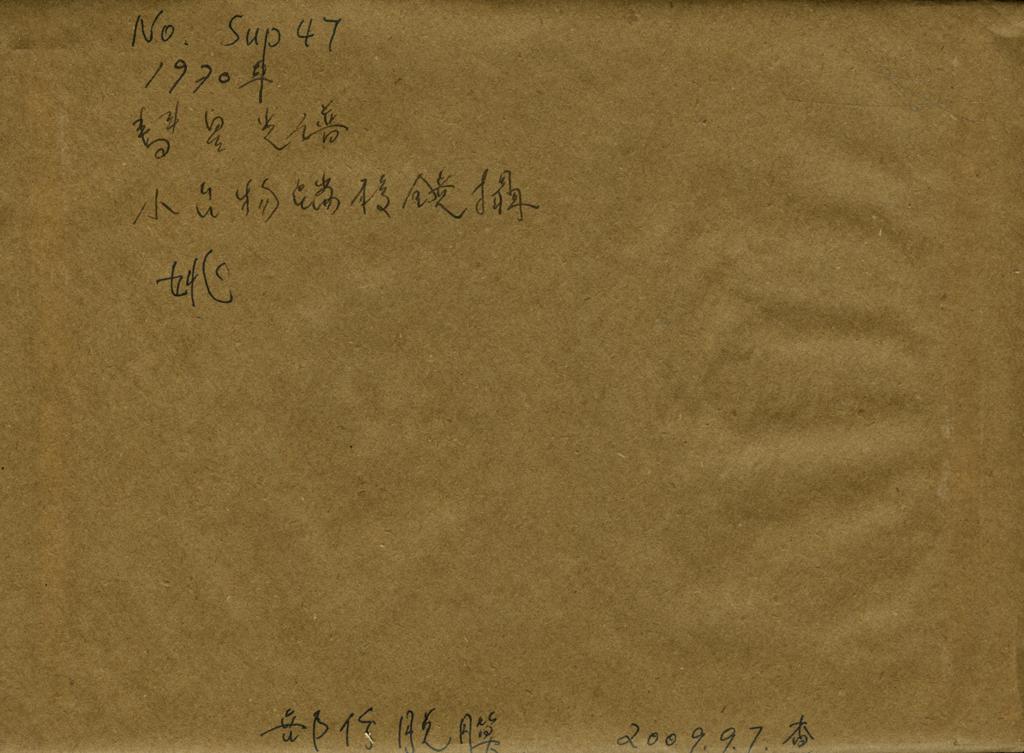 No. Sup 47
1970年
彗星光谱
小台物端棱鏡攝
姚
部份脱膜 2009.9.7.